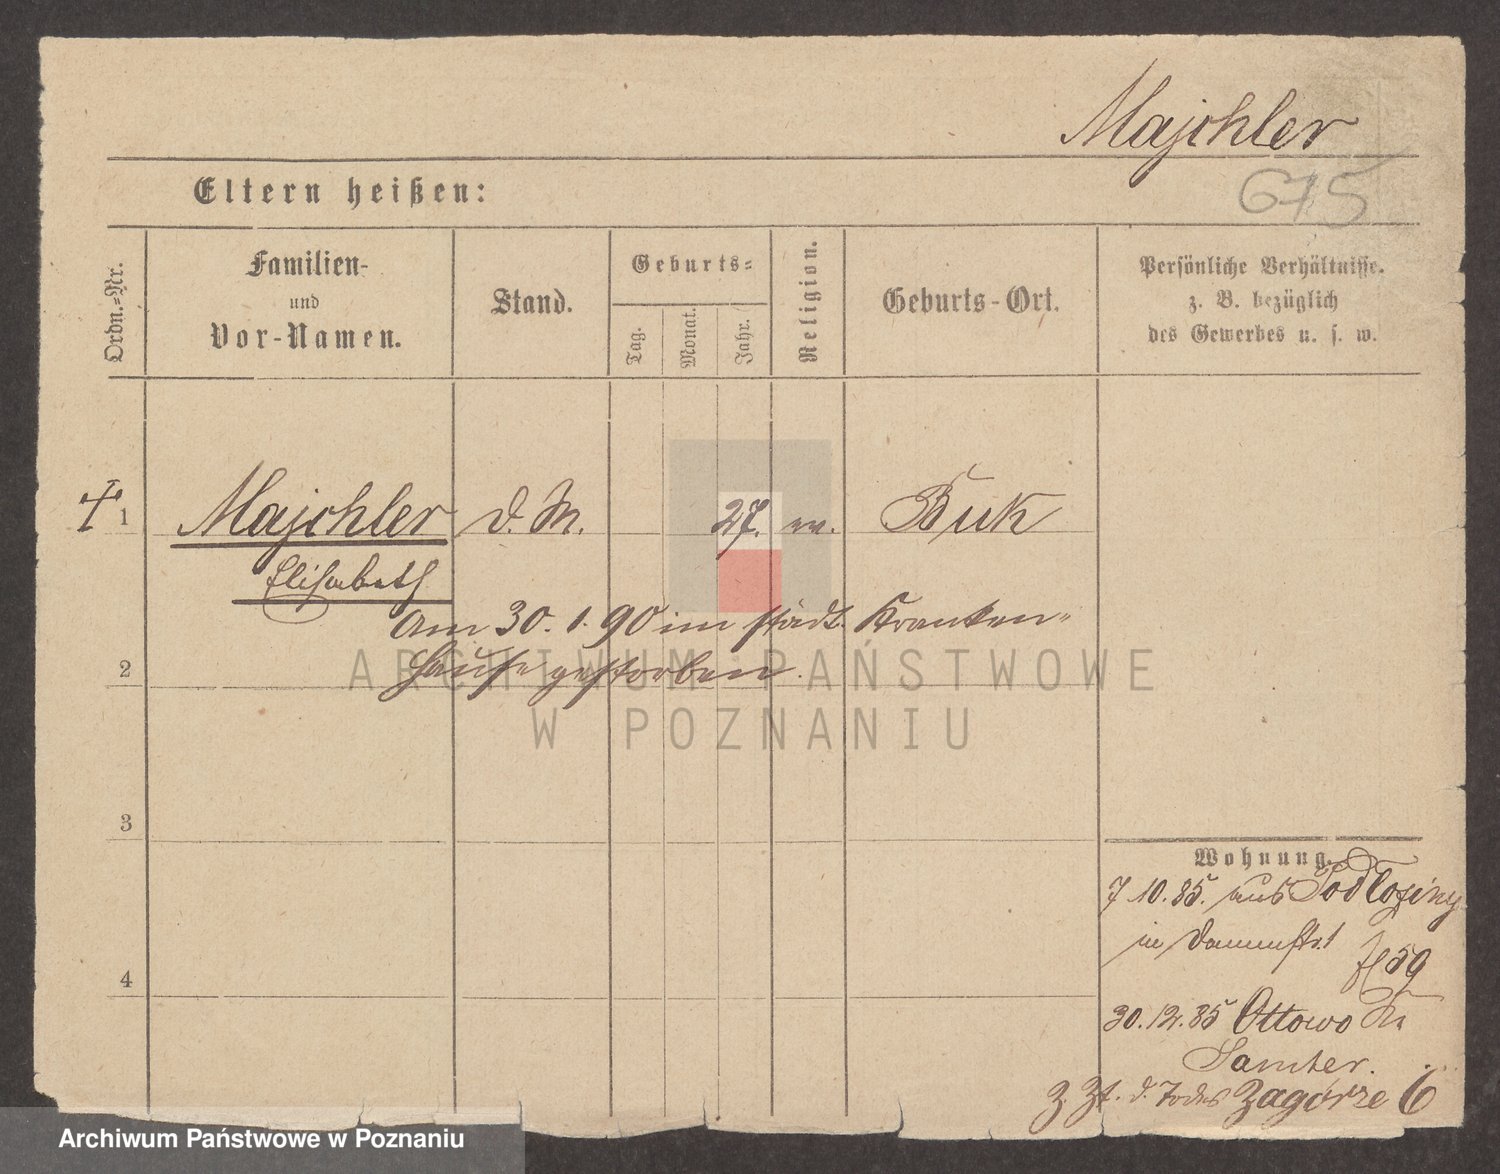 Majchler
675
Eltern heißen:
Ordn.-Nr.
Familien-
und
Vor-Namen.
Stand.
Geburts-
Tag.
Monat.
Jahr.
Religion.
Geburts-Ort.
Persönliche Verhältnisse.
z. B. bezüglich
des Gewerbes u. s. w.
1 Majchler d. M. 27. ev. Buk
Elisabeth
Am 30. 1. 90 im städt. Kranken-
Hause gestorben.
2
3
4
Wohnung.
7 10. 85. aus
in Dammstr. 1
59
30. 12. 85 Ottowo Kr
Samter.
z. Zt. d. Todes Zagórze 6
ARCHIWUM PAŃSTWOWE
W POZNANIU
Archiwum Państwowe w Poznaniu